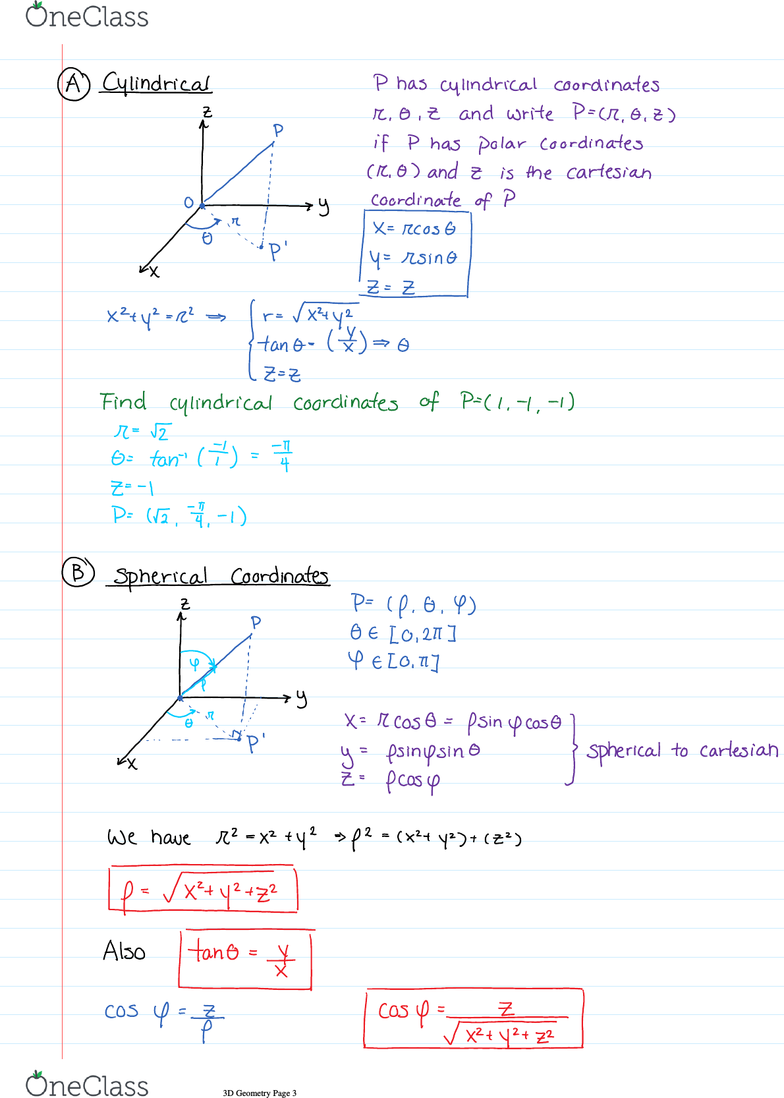 OneClass
A Cylindrical
P has cylindrical coordinates
r, θ, z and write P=(r, θ, z)
if P has polar coordinates
(r, θ) and z is the cartesian
coordinate of P
z
P
O
y
r
θ
P'
x
x = rcosθ
y = rsinθ
z = z
x²+y² = r² ⇒
r = √x²+y²
tanθ = (y/x) ⇒ θ
z=z
Find cylindrical coordinates of P=(1,-1,-1)
r = √2
θ = tan⁻¹ (-1/1) = -π/4
z = -1
P = (√2, -π/4, -1)
B Spherical Coordinates
z
P
φ
ρ
y
θ
r
P'
x
P= (ρ, θ, φ)
θ ∈ [0,2π]
φ ∈ [0,π]
x = rcosθ = ρsinφcosθ
y = ρsinφsinθ
z = ρcosφ
spherical to cartesian
We have r² = x² + y² ⇒ ρ² = (x²+y²)+(z²)
ρ = √x²+y²+z²
Also tanθ = y/x
cos φ = z/ρ
cosφ = z/√x²+y²+z²
OneClass
3D Geometry Page 3